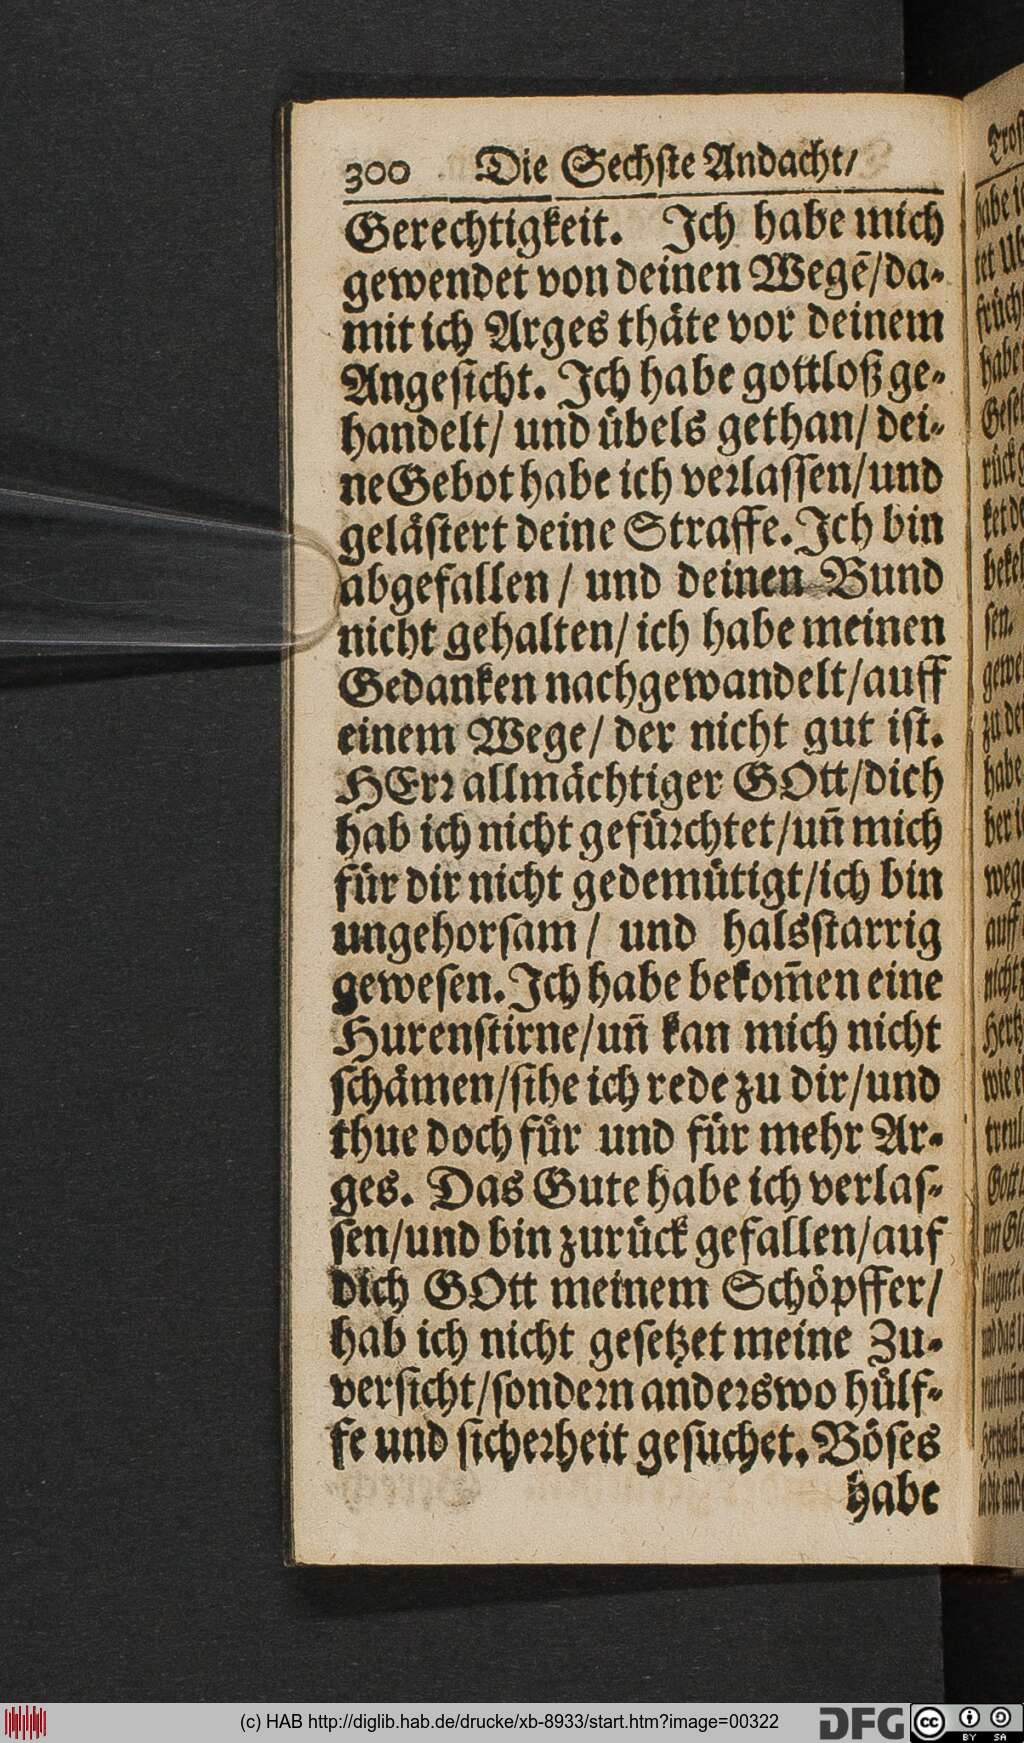 300 Die Sechste Andacht/
Gerechtigkeit. Ich habe mich
gewendet von deinen Wegē/da-
mit ich Arges thäte vor deinem
Angesicht. Ich habe gottloß ge-
handelt/ und übels gethan/ dei-
ne Gebot habe ich verlassen/und
gelästert deine Straffe. Ich bin
abgefallen / und deinen Bund
nicht gehalten/ ich habe meinen
Gedanken nachgewandelt/auff
einem Wege/ der nicht gut ist.
HErr allmächtiger GOtt/dich
hab ich nicht gefürchtet/uñ mich
für dir nicht gedemütigt/ich bin
ungehorsam/ und halsstarrig
gewesen. Ich habe bekom̃en eine
Hurenstirne/uñ kan mich nicht
schämen/sihe ich rede zu dir/und
thue doch für und für mehr Ar-
ges. Das Gute habe ich verlas-
sen/und bin zurück gefallen/auf
dich GOtt meinem Schöpffer/
hab ich nicht gesetzet meine Zu-
versicht/sondern anderswo hülf-
fe und sicherheit gesuchet. Böses
habe
(c) HAB http://diglib.hab.de/drucke/xb-8933/start.htm?image=00322
DFG cc BY SA